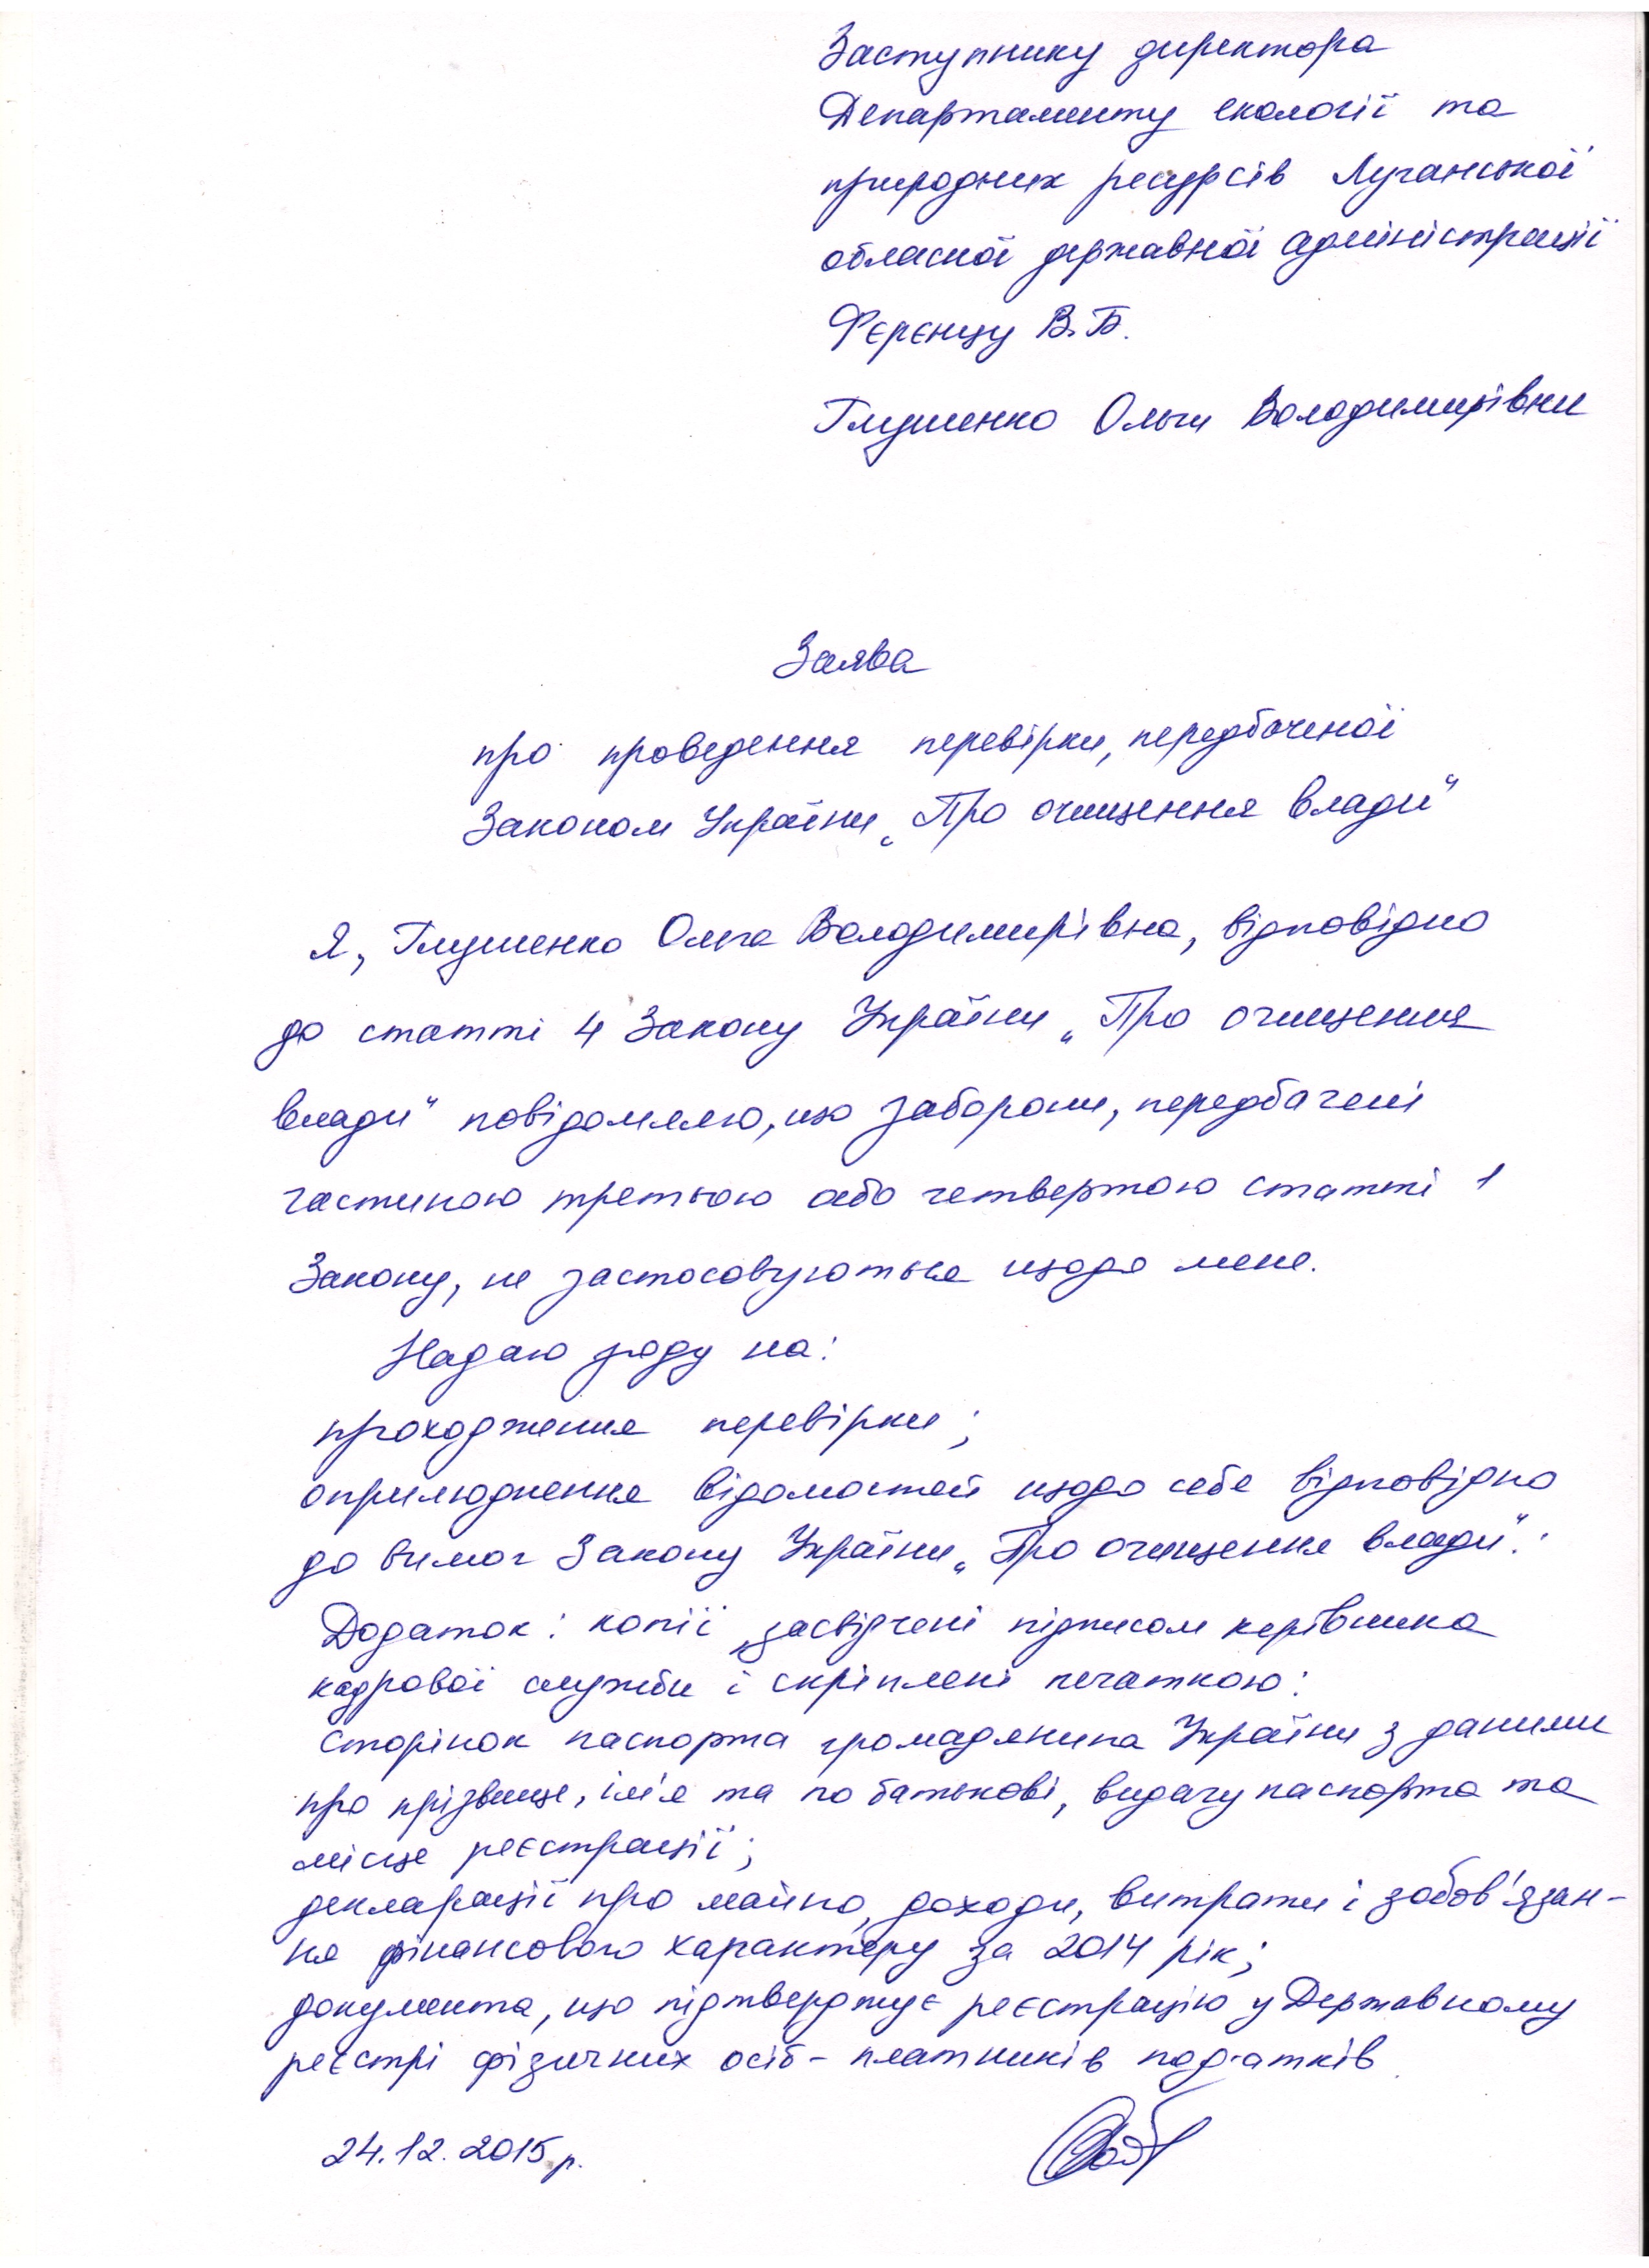 Заступнику директора
Департаменту екології та
природних ресурсів Луганської
обласної державної адміністрації
Фєрєнцу В.Б.
Глушенко Ольги Володимирівни
Заява
про проведення перевірки, передбаченої
Законом України „Про очищення влади“
Я, Глушенко Ольга Володимирівна, відповідно
до статті 4 Закону України „Про очищення
влади“ повідомляю, що заборони, передбачені
частиною третьою або четвертою статті 1
Закону, не застосовуються щодо мене.
Надаю згоду на:
проходження перевірки;
оприлюднення відомостей щодо себе відповідно
до вимог Закону України „Про очищення влади“.
Додаток: копії, засвідчені підписом керівника
кадрової служби і скріплені печаткою:
сторінок паспорта громадянина України з даними
про прізвище, ім'я та по батькові, видачу паспорта та
місце реєстрації;
декларації про майно, доходи, витрати і зобов'язан-
ня фінансового характеру за 2014 рік;
документа, що підтверджує реєстрацію у Державному
реєстрі фізичних осіб - платників податків
24.12.2015 р.